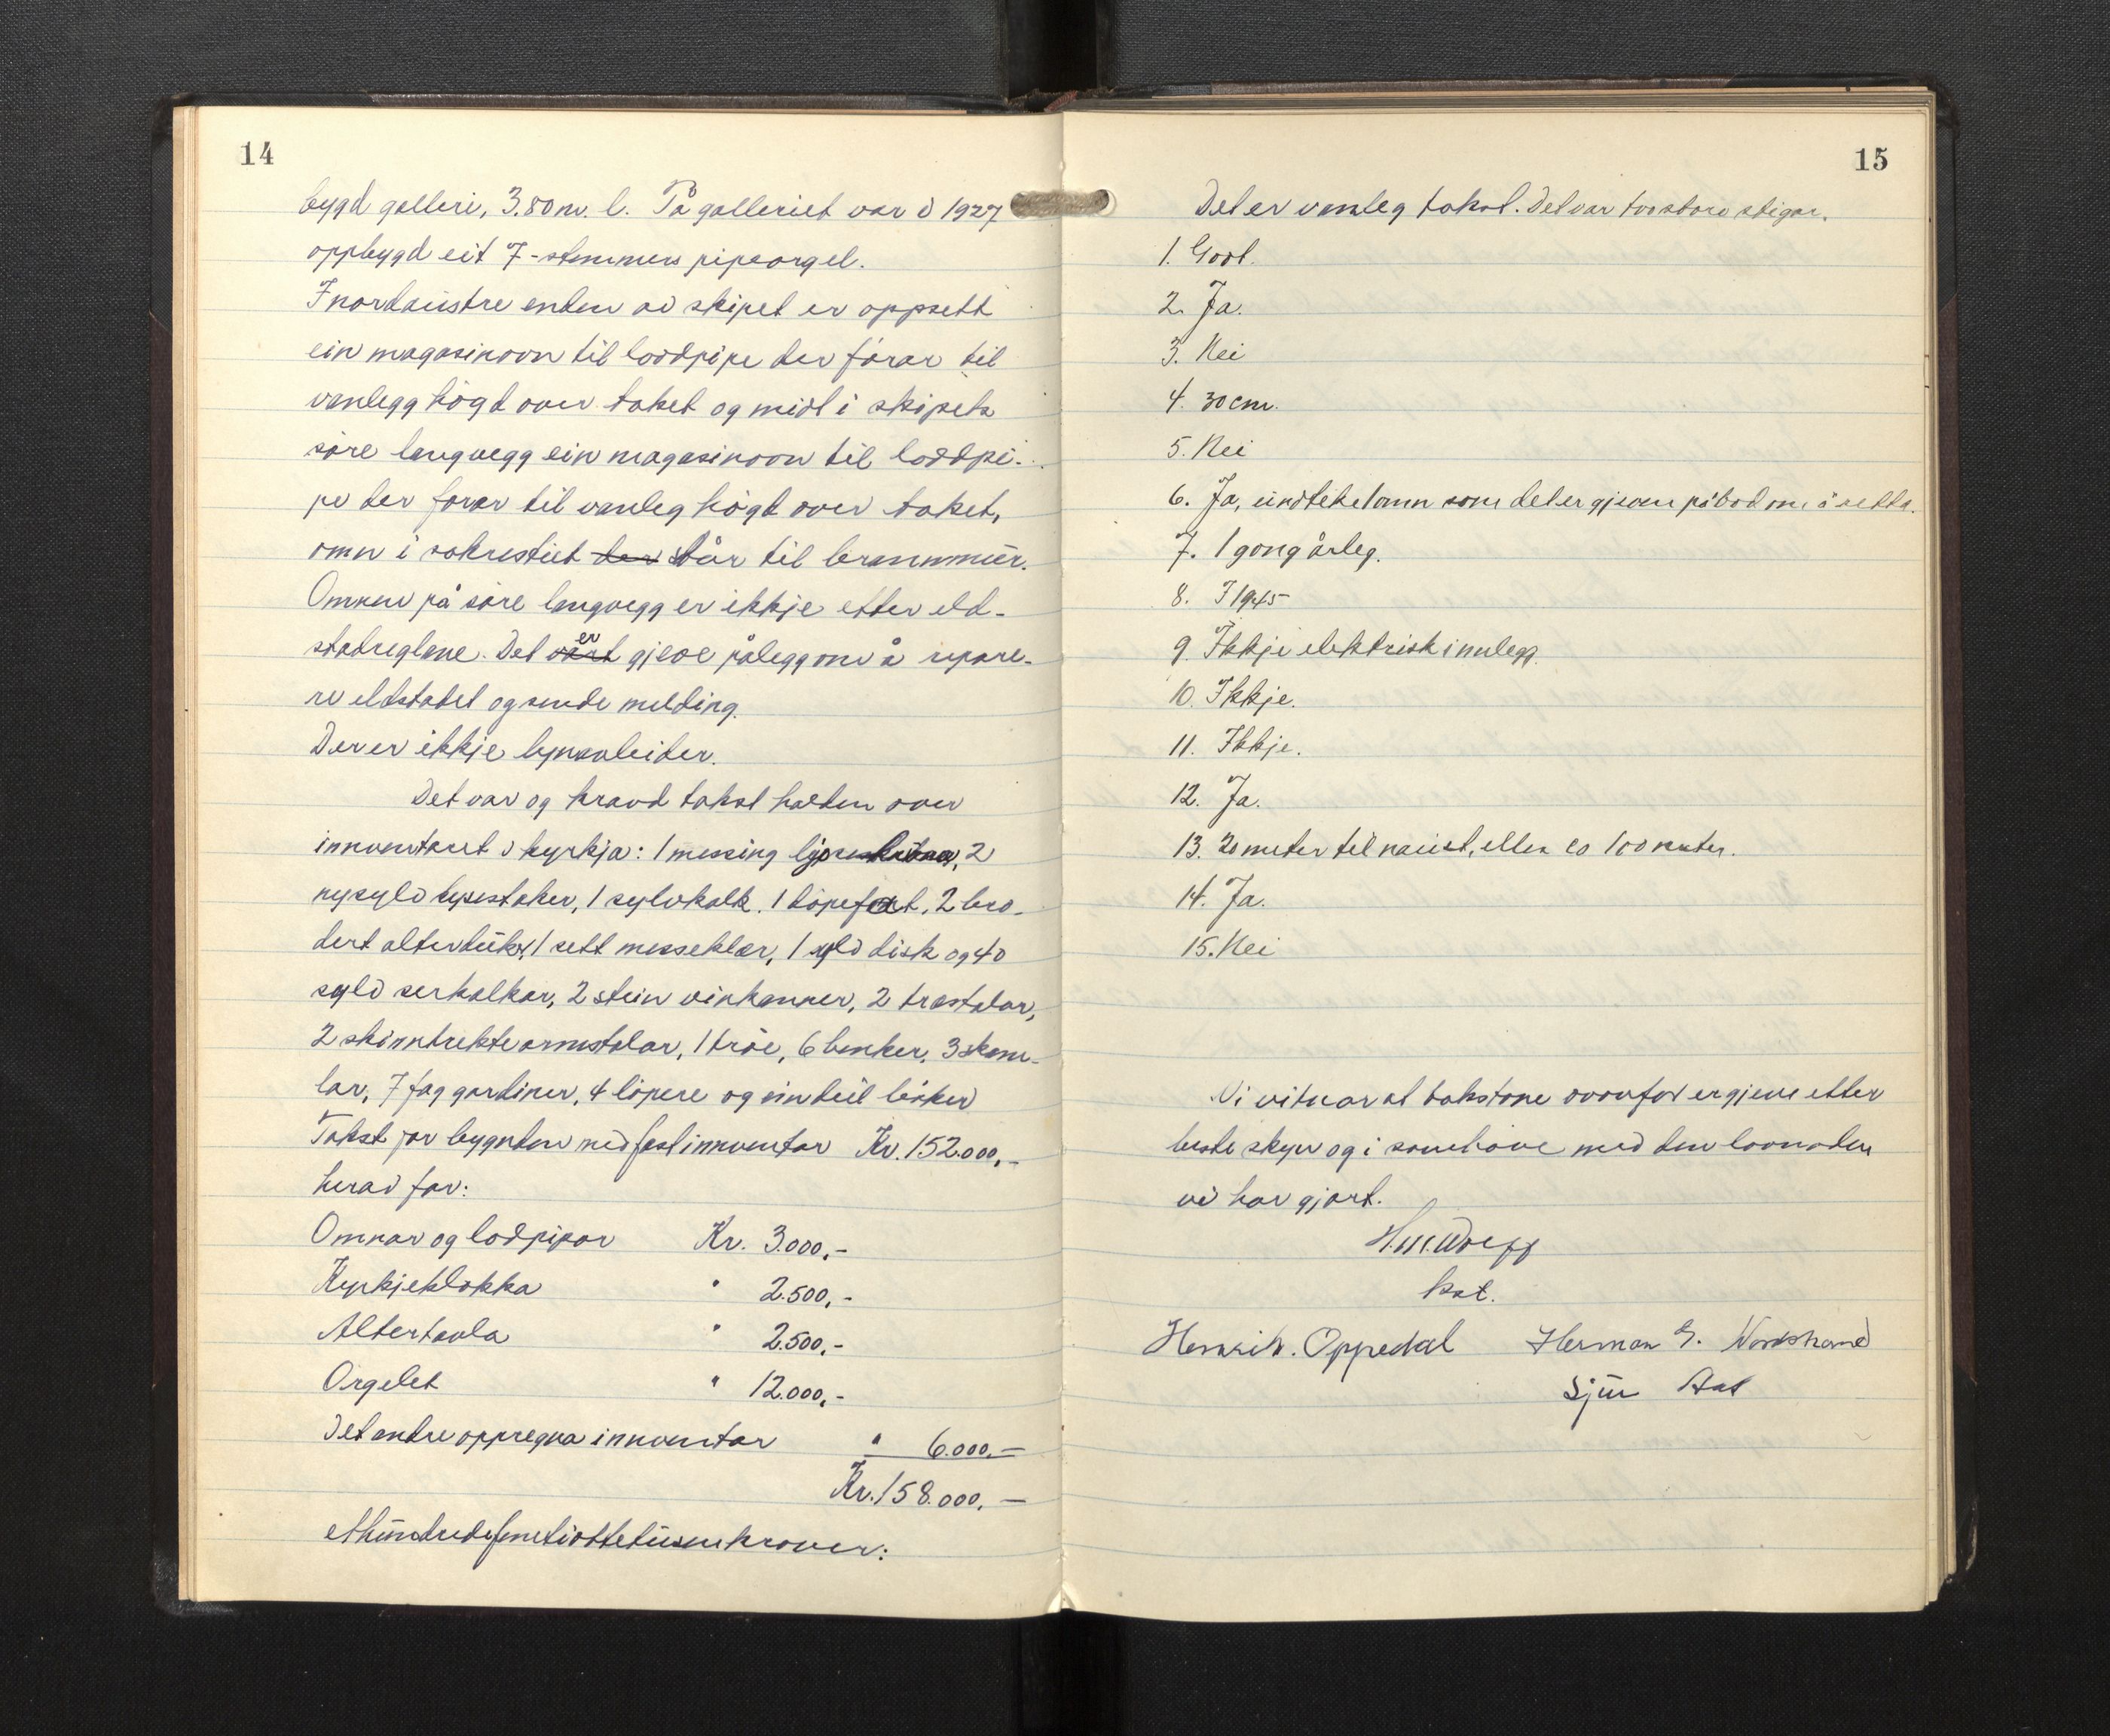 14
bygd galleri, 3.80 m. l. På galleriet var i 1927
oppbygd eit 7-stemmers pipeorgel.
I nordaustre enden av skipet er oppsett
ein magasinovn til loddpipe der førar til
vanlegg högd over taket og midt i skipets
søre langvegg ein magasinovn til loddpi-
pe der førar til vanleg högd over taket,
omn i sakrestiet der står til brannmur.
Omnen på søre langvegg er ikkje etter eld-
stadreglane. Det vart er gjeve pålegg om å repare-
re eldstadet og sende melding.
Der er ikkje lynavleider.
Det var og kravd takst halden over
innventaret i kyrkja: 1 messing, 2
nysylv lysestaker, 1 sylvkalk, 1 döpefat, 2 bro-
dert alterduker, 1 sett messeklær, 1 sylv disk og 40
sylv serkalkar, 2 stein vinkanner, 2 træstolar,
2 skinntrekte armstolar, 1 tröe, 6 benker, 3 skam-
lar, 7 fag gardiner, 4 löpere og ein deil böker
Takst for bygnden med fast innventar Kr. 152.000,-
herav for:
Omnar og lodpipor Kr. 3.000,-
Kyrkjeklokka " 2.500,-
Altertavla " 2.500,-
Orgelet " 12.000,-
Det andre oppregna innventar " 6.000,-
Kr. 158.000,-
etthundredefemtiottetusenkroner:
15
Det er vanleg takst. Det var tvo store stigar.
1. Godt.
2. Ja.
3. Nei
4. 30 cm.
5. Nei
6. Ja, undteke 1 omn som det er gjeven påbod om å retta.
7. 1 gong årleg.
8. I 1945
9. Ikkje elektrisk innlegg.
10. Ikkje.
11. Ikkje.
12. Ja.
13. 20 meter til naust, ellers ca 100 meter.
14. Ja.
15. Nei
Vi vitnar at takstane ovanfor er gjeve etter
beste skyn og i samhöve med den lovnaden
vi har gjort.
Henrik. Oppedal Herman G. Nordstrand
Sjur Aat